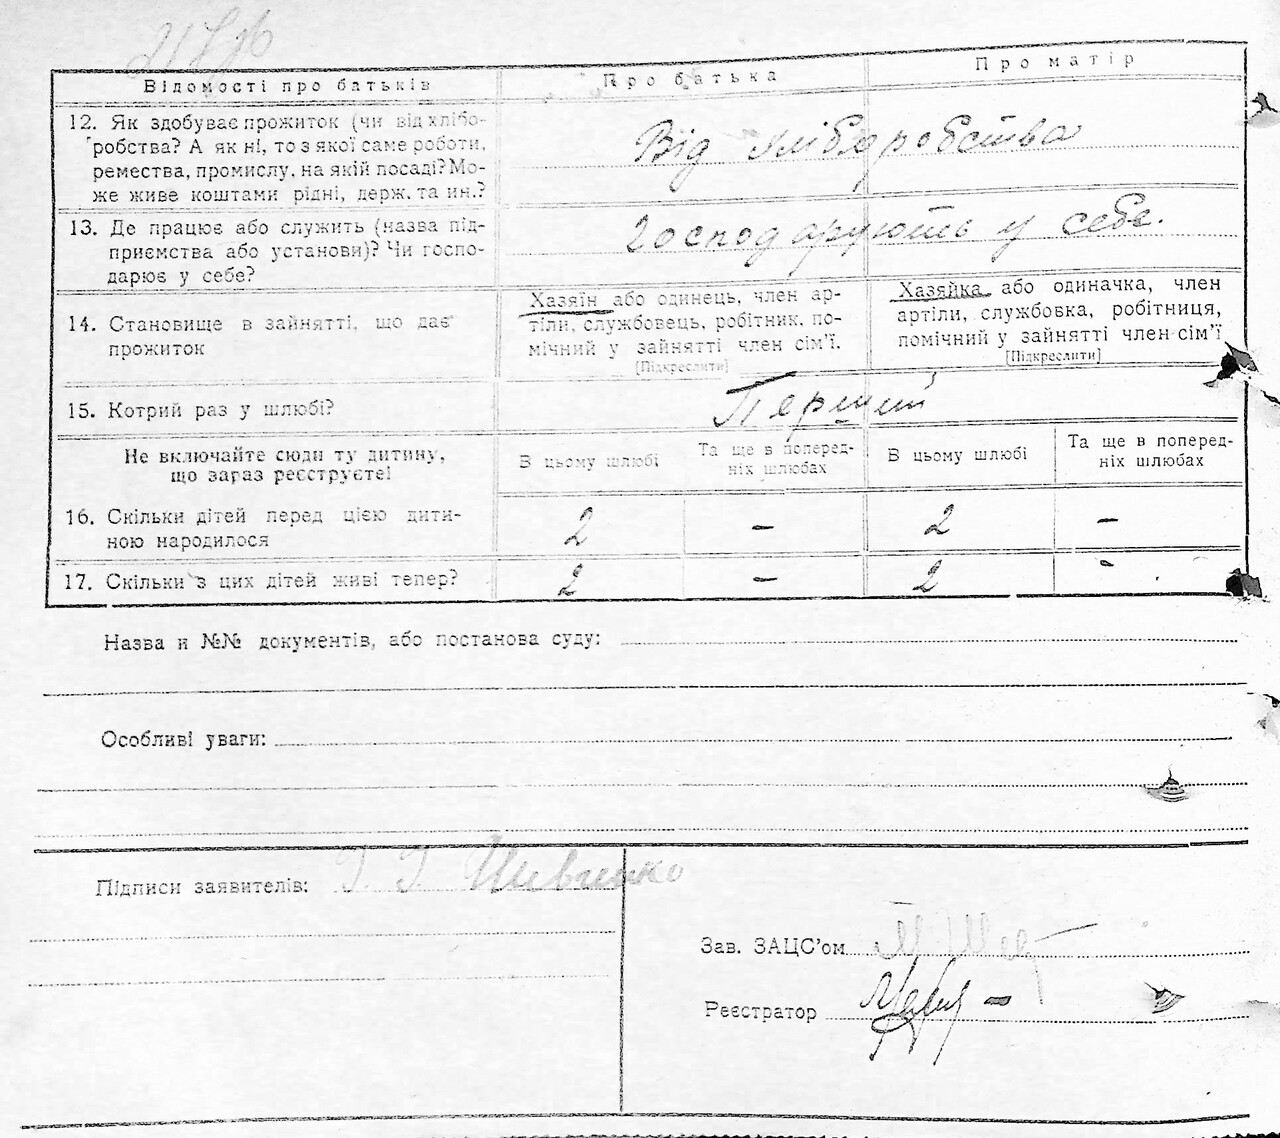 Відомості про батьків
Про батька
Про матір
12. Як здобуває прожиток (чи від хлібо-
робства? А як ні, то з якої саме роботи,
ремества, промислу, на якій посаді? Мо-
же живе коштами рідні, держ. та ин.?
Від хліборобства
13. Де працює або служить (назва під-
приємства або установи)? Чи госпо-
дарює у себе?
Господарують у себе.
14. Становище в зайнятті, що дає
прожиток
Хазяїн або одинець, член ар-
тіли, службовець, робітник, по-
мічний у зайнятті член сім'ї.
[Підкреслити]
Хазяйка або одиначка, член
артіли, службовка, робітниця,
помічний у зайнятті член сім'ї
[Підкреслити]
15. Котрий раз у шлюбі?
Перший
Не включайте сюди ту дитину,
що зараз реєструєте!
В цьому шлюбі
Та ще в поперед-
ніх шлюбах
В цьому шлюбі
Та ще в поперед-
ніх шлюбах
16. Скільки дітей перед цією дити-
ною народилося
2 - 2 -
17. Скільки з цих дітей живі тепер?
2 - 2 -
Назва и №№ документів, або постанова суду:
Особливі уваги:
Підписи заявителів:
Зав. ЗАЦС'ом
Реєстратор